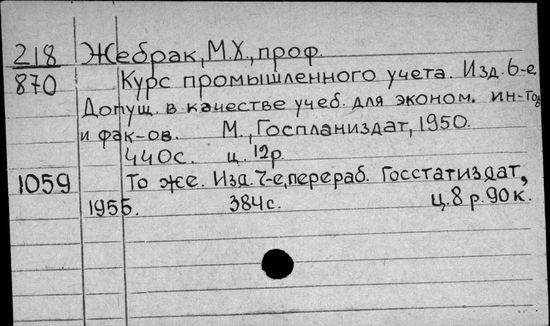 218 Жебрак, М.Х., проф.
870 Курс промышленного учета. Изд. 6-е.
Допущ. в качестве учеб. для эконом. ин-тов
и фак-ов. М., Госпланиздат, 1950.
440с. ц. 12р
1059 То же. Изд. 7-е, перераб. Госстатиздат,
1955. 384с. ц. 8 р. 90 к.